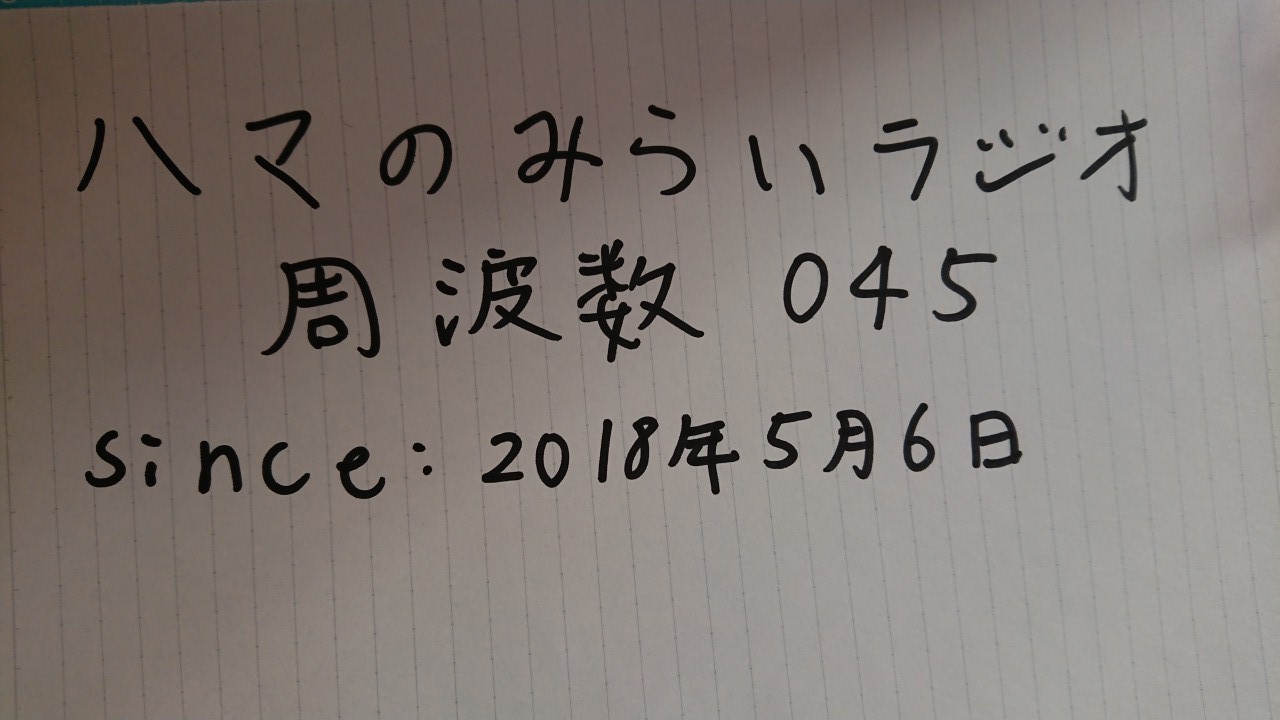 ハマのみらいラジオ
周波数 045
since: 2018年5月6日